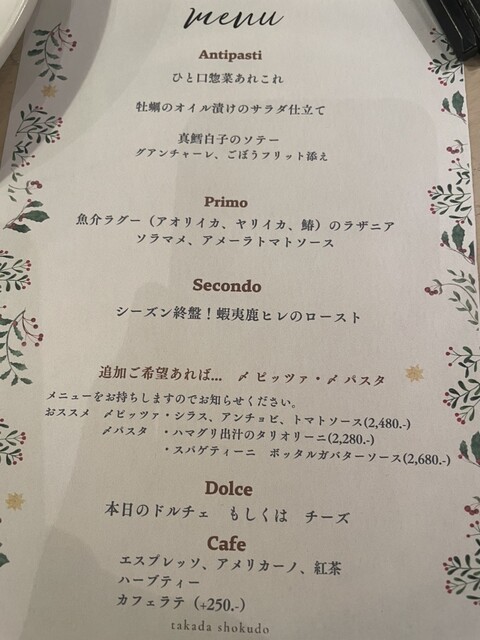 menu
Antipasti
ひと口惣菜あれこれ
牡蠣のオイル漬けのサラダ仕立て
真鱈白子のソテー
グアンチャーレ、ごぼうフリット添え
Primo
魚介ラグー（アオリイカ、ヤリイカ、鰆）のラザニア
ソラマメ、アメーラトマトソース
Secondo
シーズン終盤！蝦夷鹿ヒレのロースト
追加ご希望あれば... 〆ピッツァ・〆パスタ
メニューをお持ちしますのでお知らせください。
おススメ 〆ピッツァ・シラス、アンチョビ、トマトソース(2,480.-)
〆パスタ ・ハマグリ出汁のタリオリーニ(2,280.-)
・スパゲティーニ ボッタルガバターソース(2,680.-)
Dolce
本日のドルチェ もしくは チーズ
Cafe
エスプレッソ、アメリカーノ、紅茶
ハーブティー
カフェラテ（+250.-）
takada shokudo